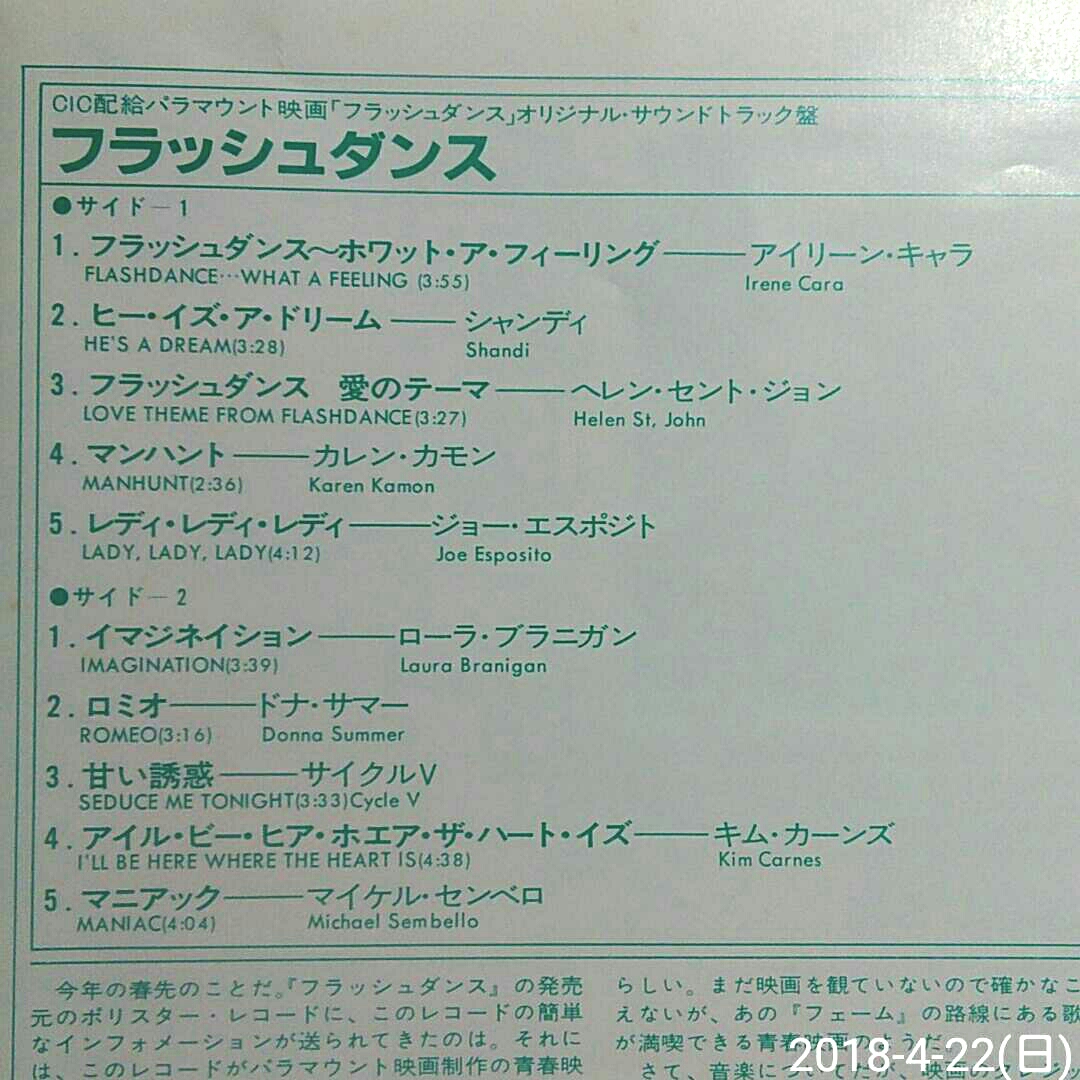 CIC配給パラマウント映画「フラッシュダンス」オリジナル・サウンドトラック盤
フラッシュダンス
●サイド－1
1．フラッシュダンス～ホワット・ア・フィーリング────アイリーン・キャラ
FLASHDANCE…WHAT A FEELING (3:55) Irene Cara
2．ヒー・イズ・ア・ドリーム────シャンディ
HE'S A DREAM(3:28) Shandi
3．フラッシュダンス　愛のテーマ────ヘレン・セント・ジョン
LOVE THEME FROM FLASHDANCE(3:27) Helen St, John
4．マンハント────カレン・カモン
MANHUNT(2:36) Karen Kamon
5．レディ・レディ・レディ────ジョー・エスポジト
LADY, LADY, LADY(4:12) Joe Esposito
●サイド－2
1．イマジネイション────ローラ・ブラニガン
IMAGINATION(3:39) Laura Branigan
2．ロミオ────ドナ・サマー
ROMEO(3:16) Donna Summer
3．甘い誘惑────サイクルV
SEDUCE ME TONIGHT(3:33)Cycle V
4．アイル・ビー・ヒア・ホエア・ザ・ハート・イズ────キム・カーンズ
I'LL BE HERE WHERE THE HEART IS(4:38) Kim Carnes
5．マニアック────マイケル・センベロ
MANIAC(4:04) Michael Sembello
今年の春先のことだ。『フラッシュダンス』の発売
元のポリスター・レコードに、このレコードの簡単
なインフォメーションが送られてきたのは。それに
は、このレコードがパラマウント映画制作の青春映
らしい。まだ映画を観ていないので確かなこ
えないが、あの『フェーム』の路線にある歌
が満喫できる青春映画のようだ
さて、音楽についてだが、映画のクレジッ
2018-4-22(日)